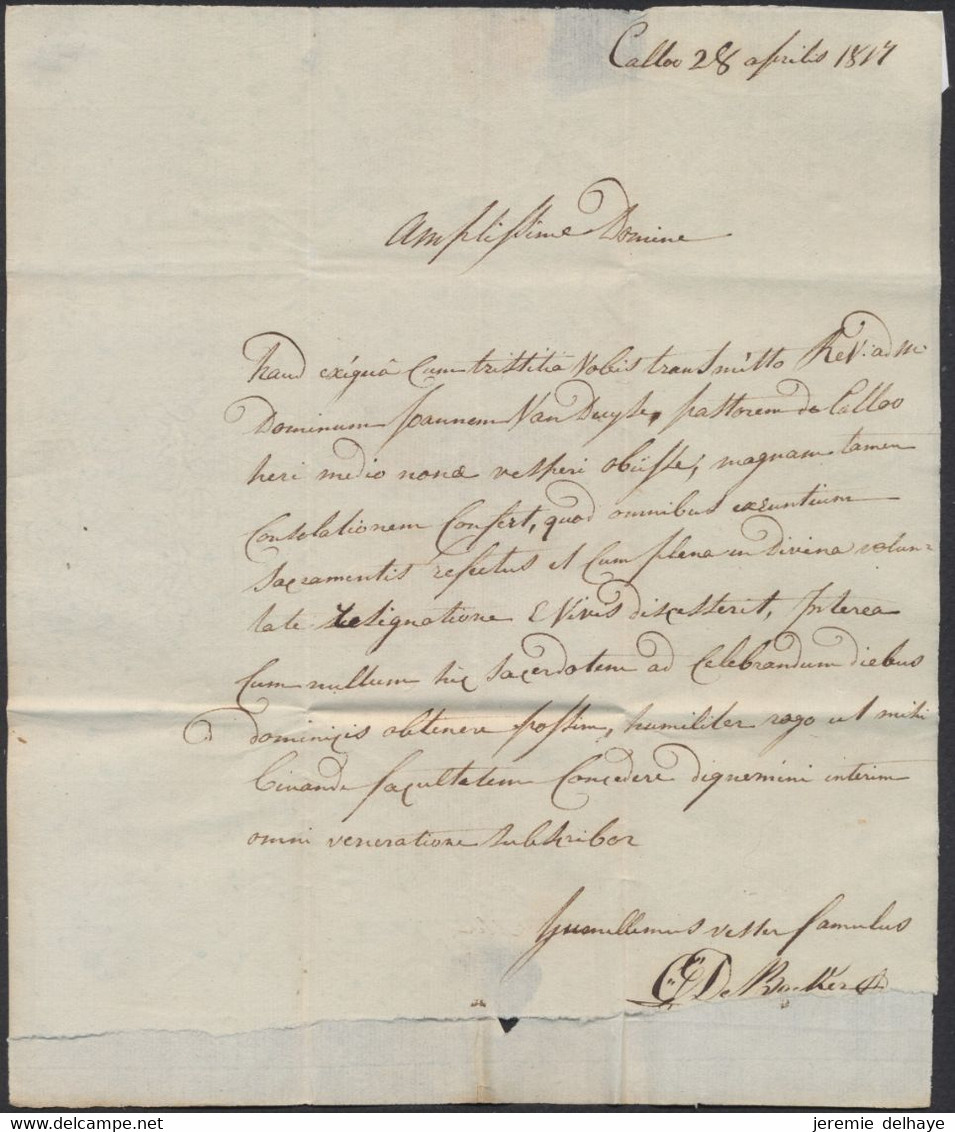 Calloo 28 aprilis 1817
Amplissime Domine
haud exiguâ Cum tristitia Vobis transmitto Rev: adm:
Dominum Joannem Van Duyse, pastorem de Calloo
heri medio nonæ vesperi obiisse, magnam tamen
Consolationem Confert, quod omnibus exeuntium
sacramentis refectus et Cum plena in divina volun=
tate resignatione e Vivis discesserit, Interea
Cum nullum hic sacerdotem ad Celebrandum diebus
dominicis obtenere possim, humiliter rogo ut mihi
binandi facultatem Concedere dignemini interim
omni veneratione subscribor
humillimus vester famulus
De
jeremie delhaye